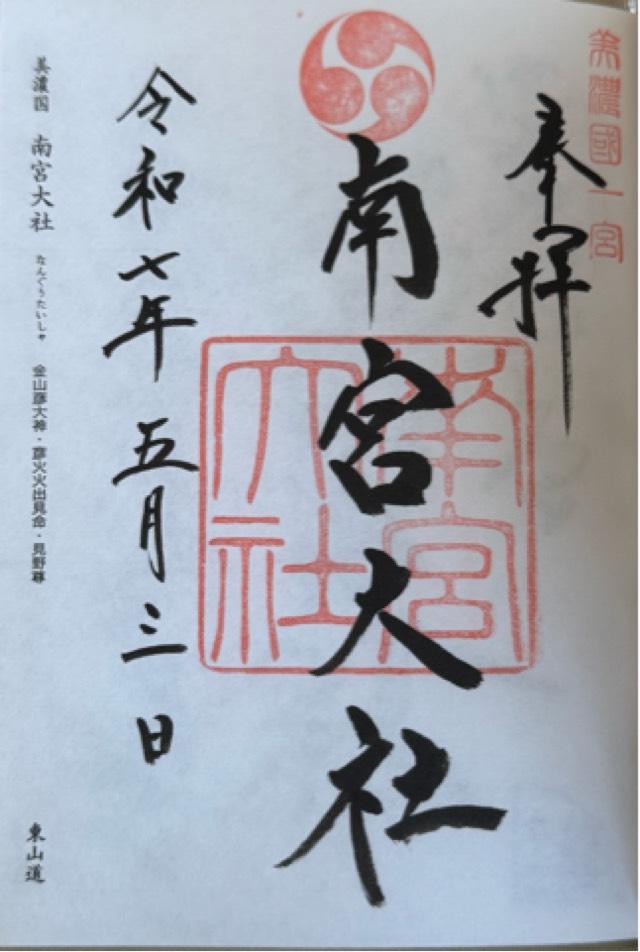 美濃國一宮
奉拝
南宮大社
南宮大社
令和七年五月三日
美濃国 南宮大社 なんぐうたいしゃ 金山彦大神・彦火火出見命・見野尊
東山道